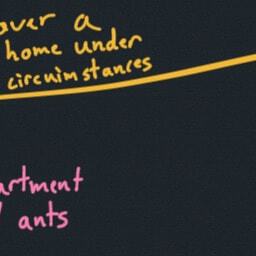 over a
home under
circuimstances
artment
ants